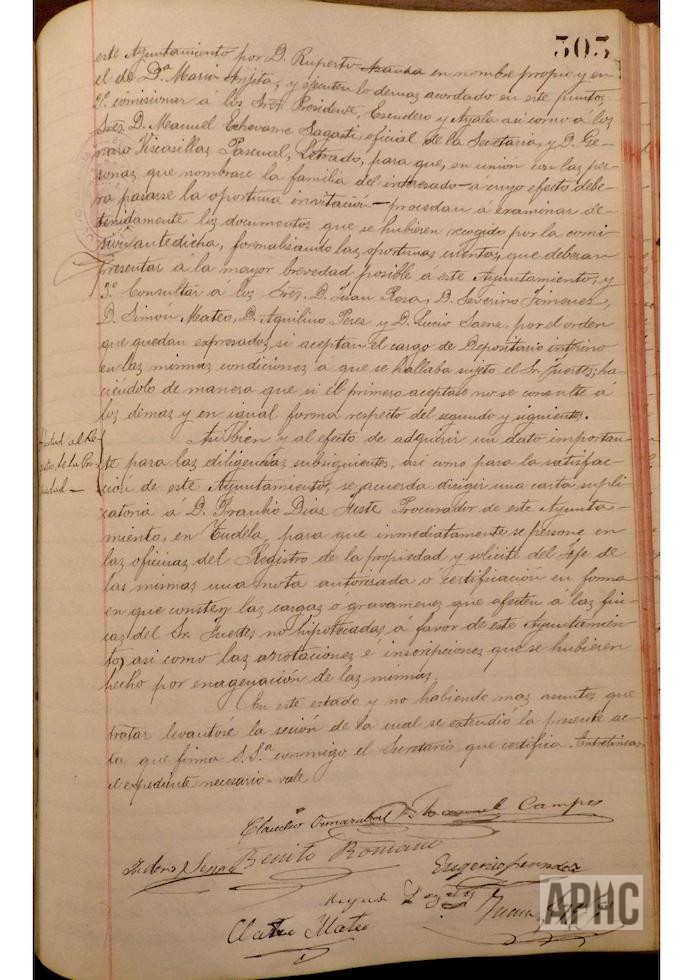 303
este Ayuntamiento por D. Ruperto en nombre propio y en
el de Dª Maria y ejecuten lo demas acordado en este punto,
2º comisionar á los Sres Presidente, Escudero y Ayala asi como á los
Sres. D. Manuel Echavarne Sagasti, oficial de la Secretaria, y D. Ge-
naro Viscasillas Pascual, Letrado, para que, en unión con las per-
sonas que nombrare la familia del interesado - á cuyo efecto debe-
rá pasarse la oportuna invitación - procedan á examinar de-
tenidamente los documentos que se hubieren recogido por la comi-
sión antedicha, formalizando las oportunas cuentas, que deberan
presentar á la mayor brevedad posible á este Ayuntamiento, y
3º Consultar á los Sres. D. Juan Rosa, D. Severino Jimenez,
D. Simon Mateo, D. Aquilino Perez y D. Lucio Saenz, por el orden
que quedan expresados, si aceptan el cargo de Depositario interino
en las mismas condiciones á que se hallaba sujeto el Sr. Fuertes; ha-
ciéndolo de manera que si el primero aceptase no se consulte á
los demas y en igual forma respecto del segundo y siguientes.
Asi bien y al efecto de adquirir un dato importan-
te para las diligencias subsiguientes, asi como para la satisfac-
ción de este Ayuntamiento, se acuerda dirigir una carta supli-
catoria á D. Braulio Diaz Procurador de este Ayunta-
miento, en Tudela, para que inmediatamente se persone en
las oficinas del Registro de la propiedad y solicite del Jefe de
las mismas una nota autorizada ó certificación en forma
en que consten las cargas ó gravamenes que afecten á las fin-
cas del Sr. Fuertes no hipotecadas á favor de este Ayuntamien-
to, asi como las anotaciones e inscripciones que se hubieren
hecho por enagenación de las mismas.
En este estado y no habiendo mas asuntos que
tratar levantóse la sesión de la cual se extendió la presente ac-
ta que firma S. Sª conmigo el Secretario que certifico. Entrelineas
el expediente necesario - vale
Claudio Manuel Campos
Benito Romano
Eugenio
Mateo
APHC